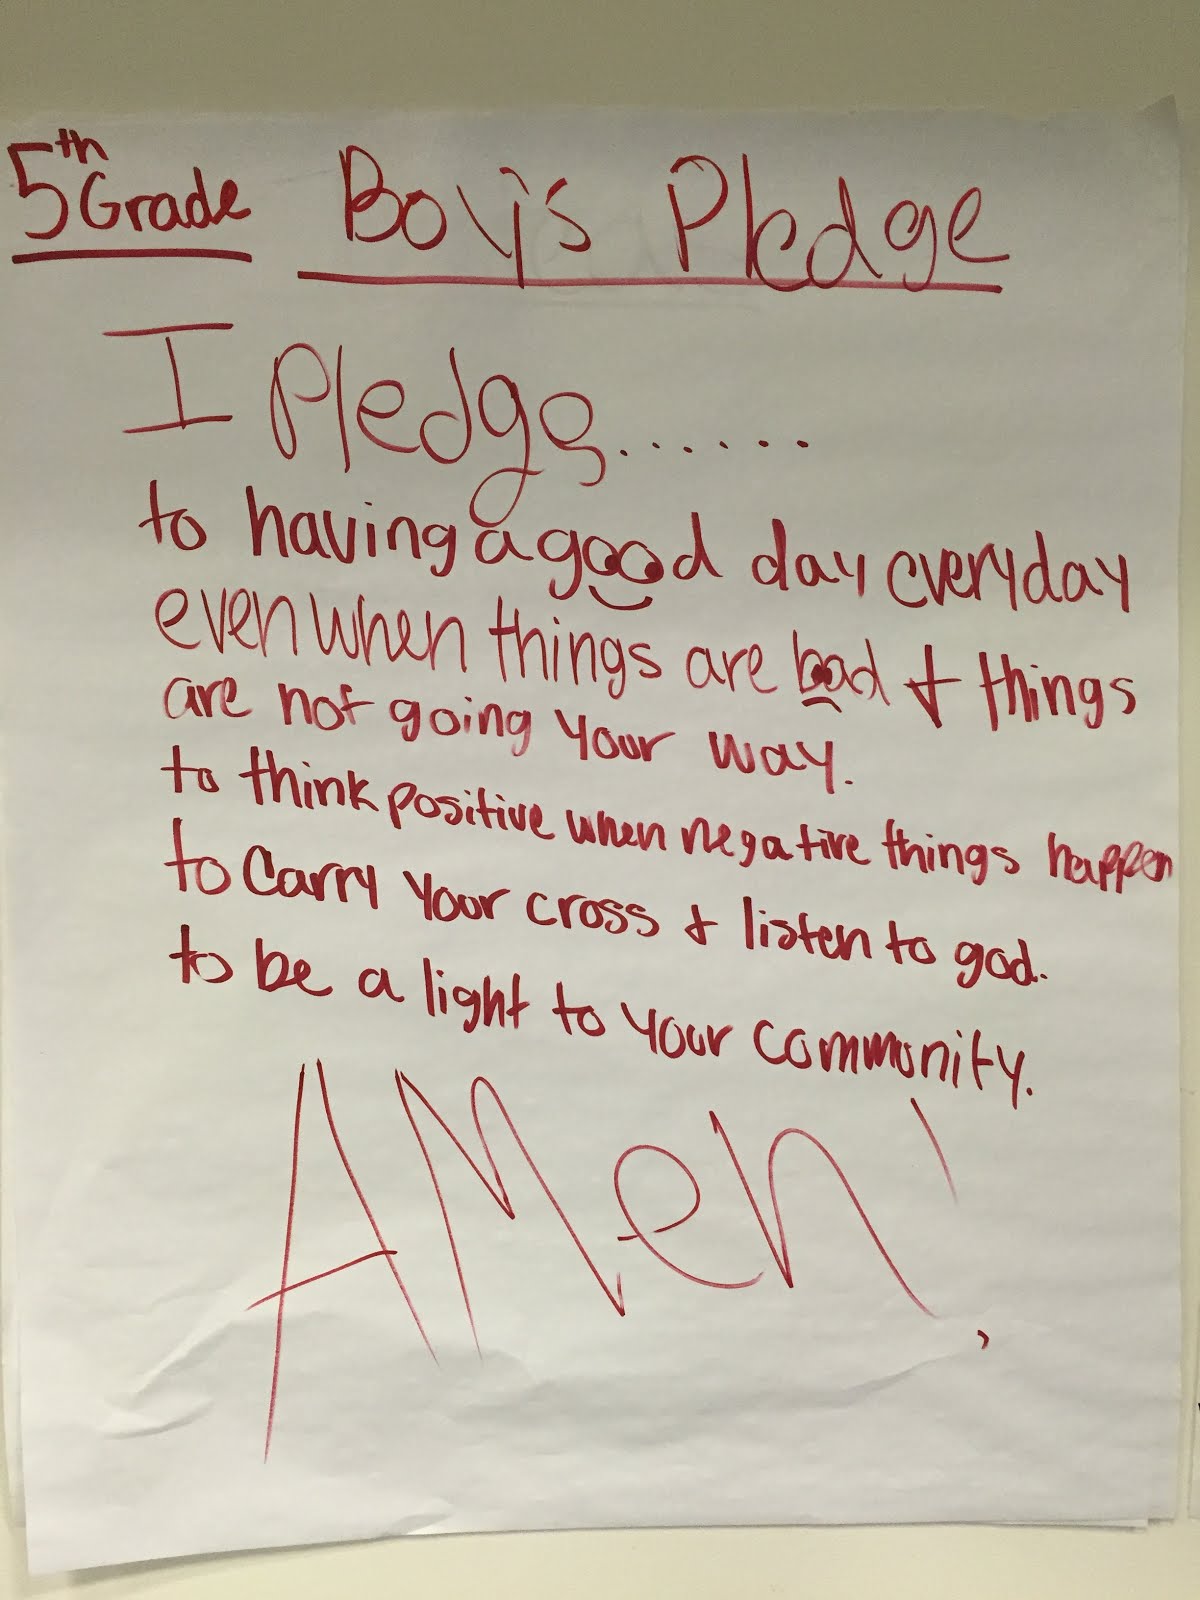 5th Grade Boy's Pledge
I Pledge......
to having a good day everyday
even when things are bad & things
are not going your way.
to think positive when negative things happen
to carry your cross & listen to god.
to be a light to your community.
AMen!